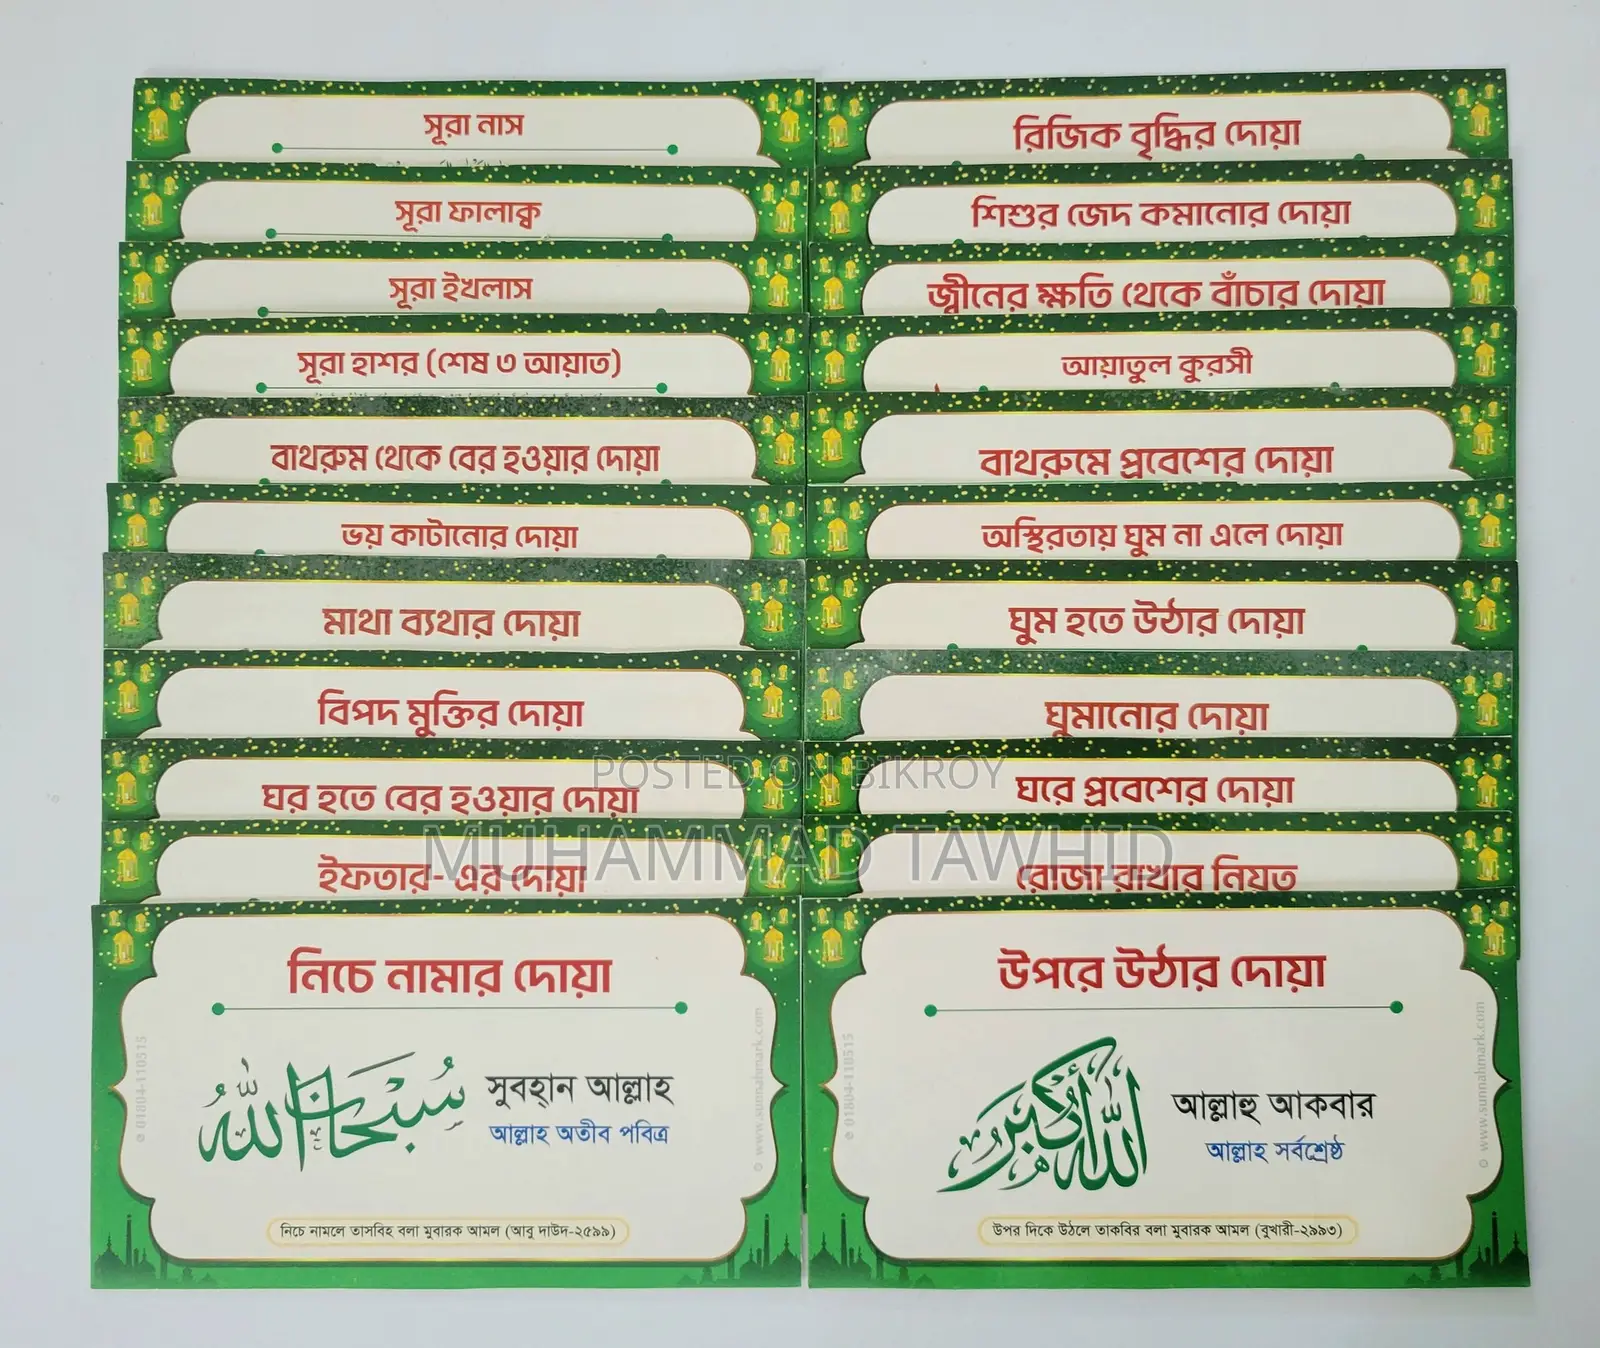 সূরা নাস
সূরা ফালাক্ব
সূরা ইখলাস
সূরা হাশর (শেষ ৩ আয়াত)
বাথরুম থেকে বের হওয়ার দোয়া
ভয় কাটানোর দোয়া
মাথা ব্যথার দোয়া
বিপদ মুক্তির দোয়া
ঘর হতে বের হওয়ার দোয়া
ইফতার- এর দোয়া
নিচে নামার দোয়া
سُبْحَانَ اللّٰه
সুবহান আল্লাহ
আল্লাহ অতীব পবিত্র
নিচে নামলে তাসবিহ বলা মুবারক আমল (আবু দাউদ-২৫৯৯)
01804-110515
© www.sunnahmark.com
রিজিক বৃদ্ধির দোয়া
শিশুর জেদ কমানোর দোয়া
জ্বীনের ক্ষতি থেকে বাঁচার দোয়া
আয়াতুল কুরসী
বাথরুমে প্রবেশের দোয়া
অস্থিরতায় ঘুম না এলে দোয়া
ঘুম হতে উঠার দোয়া
ঘুমানোর দোয়া
ঘরে প্রবেশের দোয়া
রোজা রাখার নিয়ত
উপরে উঠার দোয়া
الله أكبر
আল্লাহু আকবার
আল্লাহ সর্বশ্রেষ্ঠ
উপর দিকে উঠলে তাকবির বলা মুবারক আমল (বুখারী-২৯৯৩)
01804-110515
© www.sunnahmark.com
POSTED ON BIKROY
MUHAMMAD TAWHID